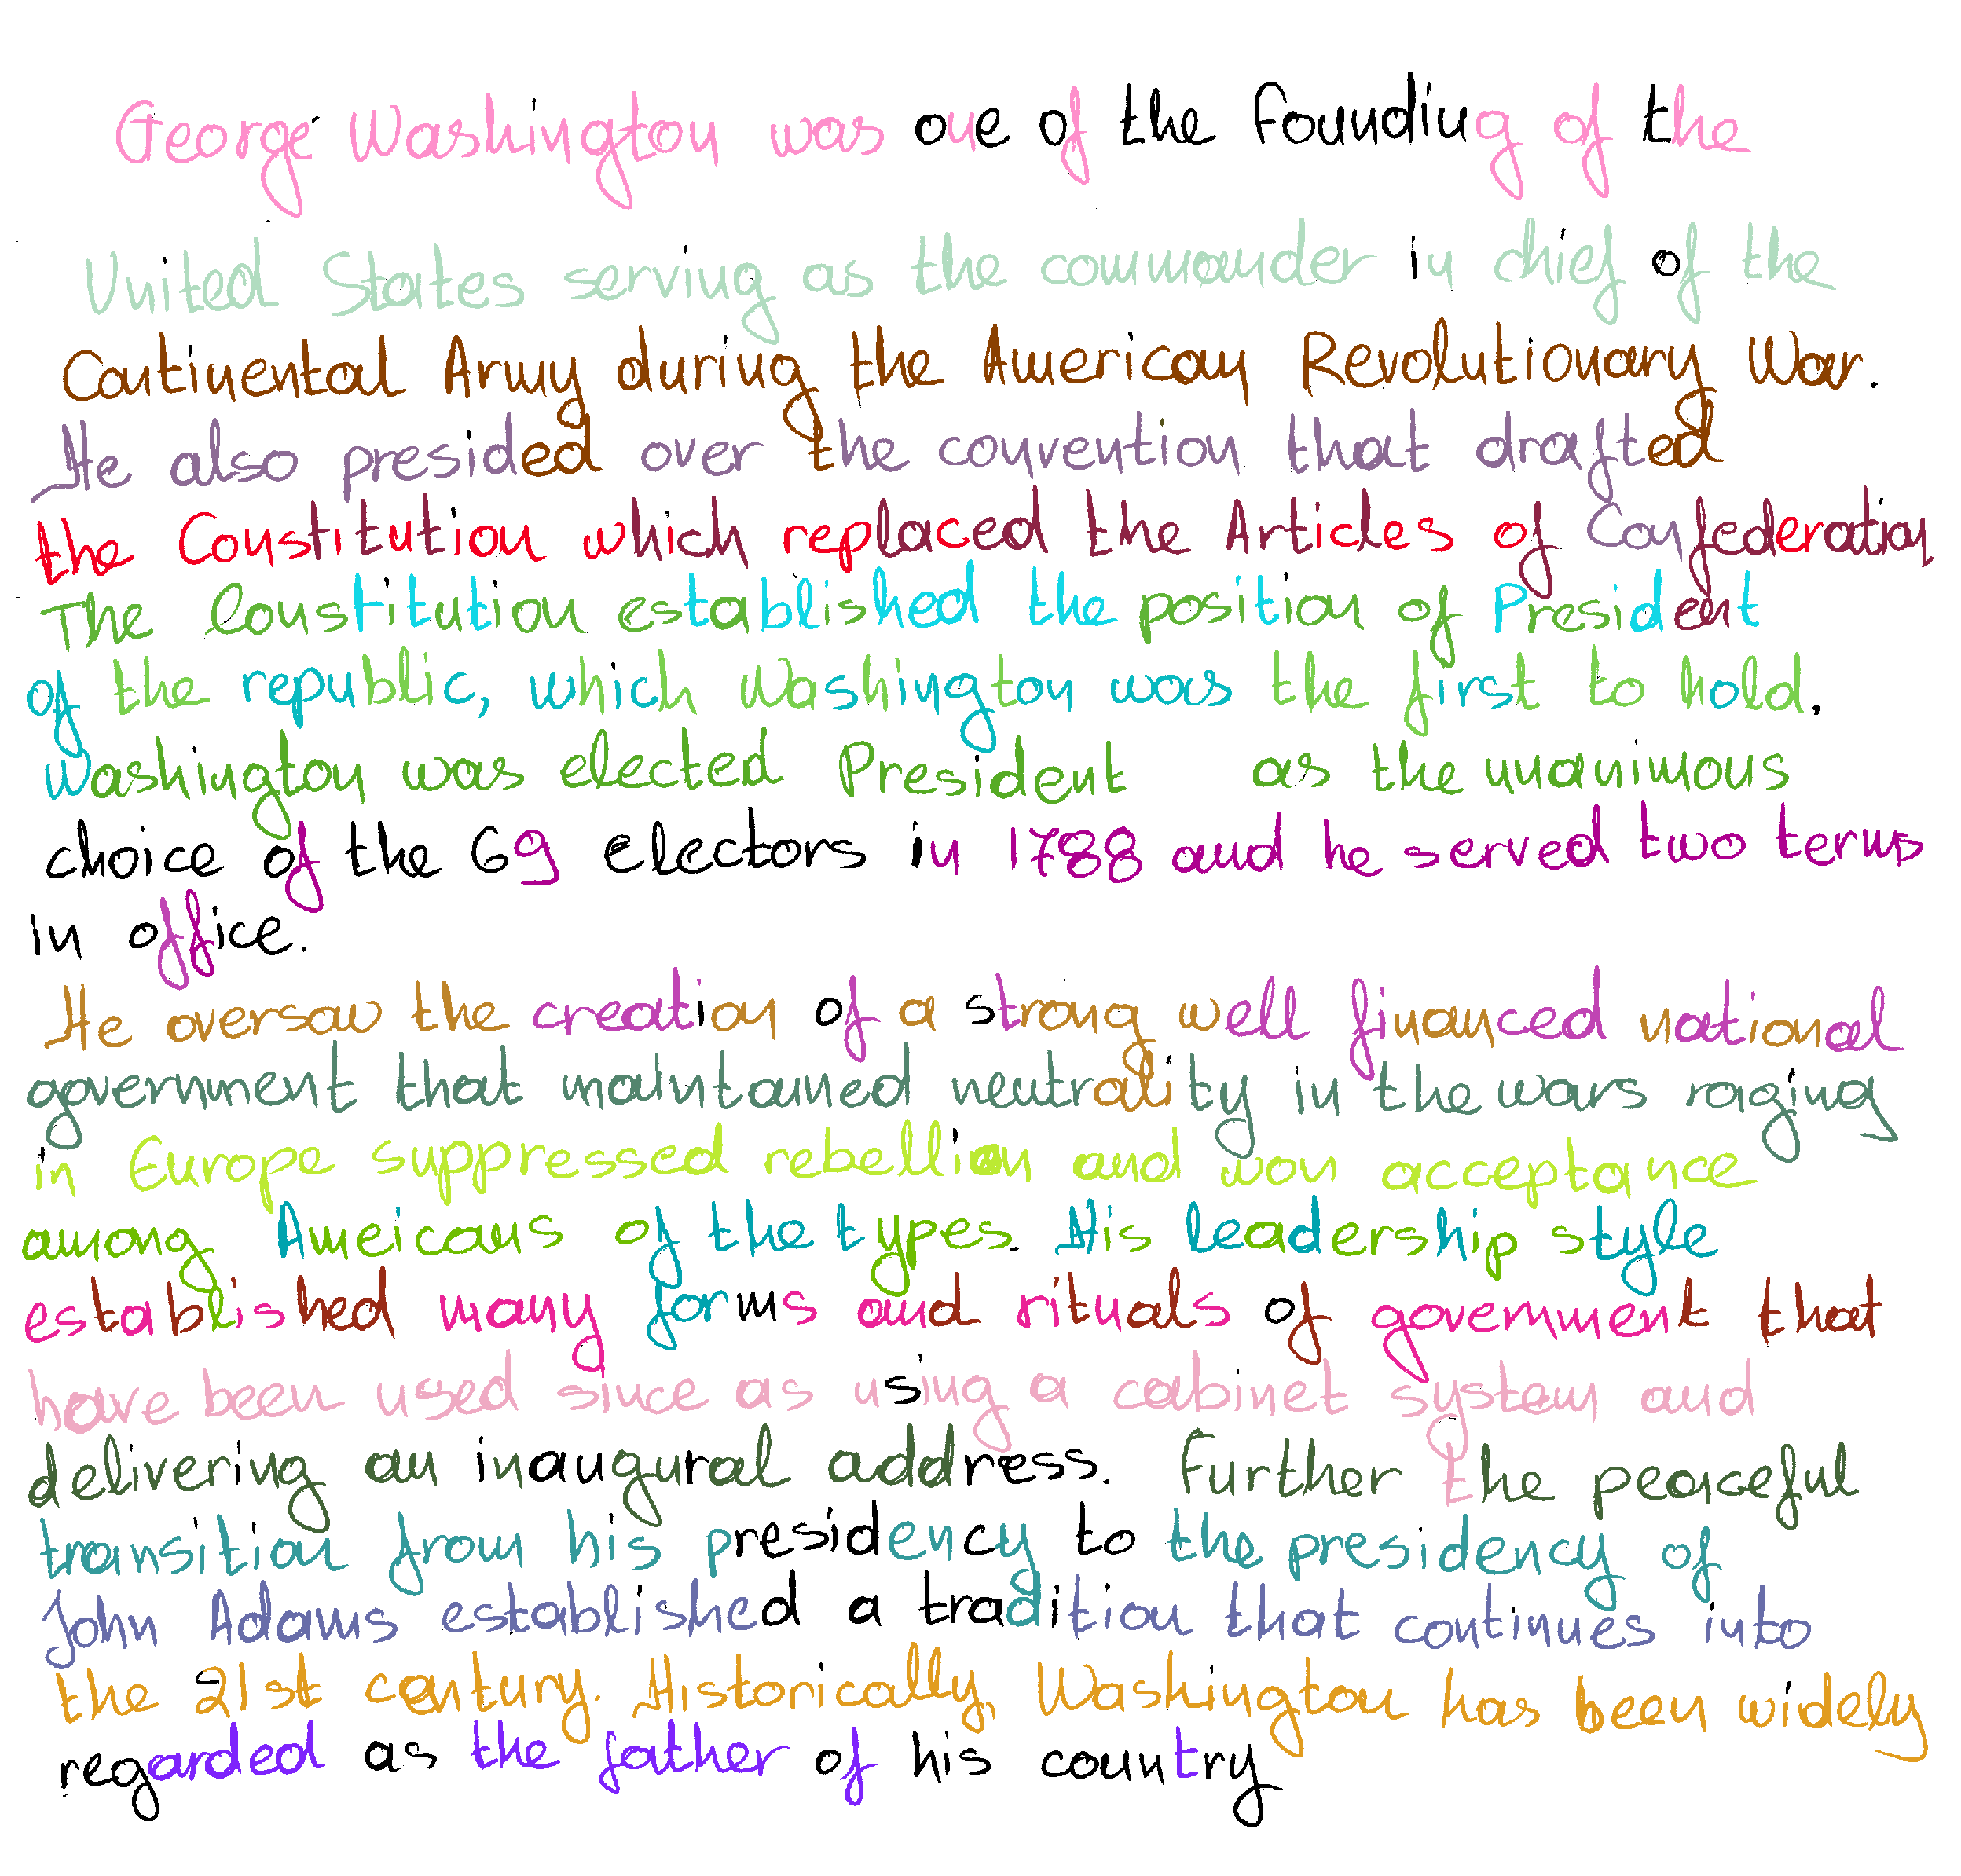 George Washington was one of the founding of the
United States serving as the commander in chief of the
Continental Army during the American Revolutionary War.
He also presided over the convention that drafted
the Constitution which replaced the Articles of Confederation
The Constitution established the position of President
of the republic, which Washington was the first to hold.
Washington was elected President as the unanimous
choice of the 69 electors in 1788 and he served two terms
in office.
He oversaw the creation of a strong well financed national
government that maintained neutrality in the wars raging
in Europe suppressed rebellion and won acceptance
among Ameicans of the types. His leadership style
established many forms and rituals of government that
have been used since as using a cabinet system and
delivering an inaugural address. Further the peaceful
transition from his presidency to the presidency of
John Adams established a tradition that continues into
the 21st century. Historically, Washington has been widely
regarded as the father of his country